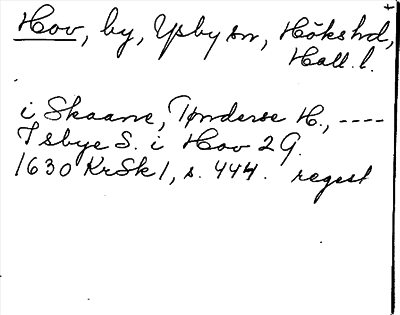 Hov, by, Ysby sn, Hökshd,
Hall. l.
i Skaane, Tønderse H., ----
Tsbye S. i Hov 2 G.
1630 KrSk 1, s. 444. regest